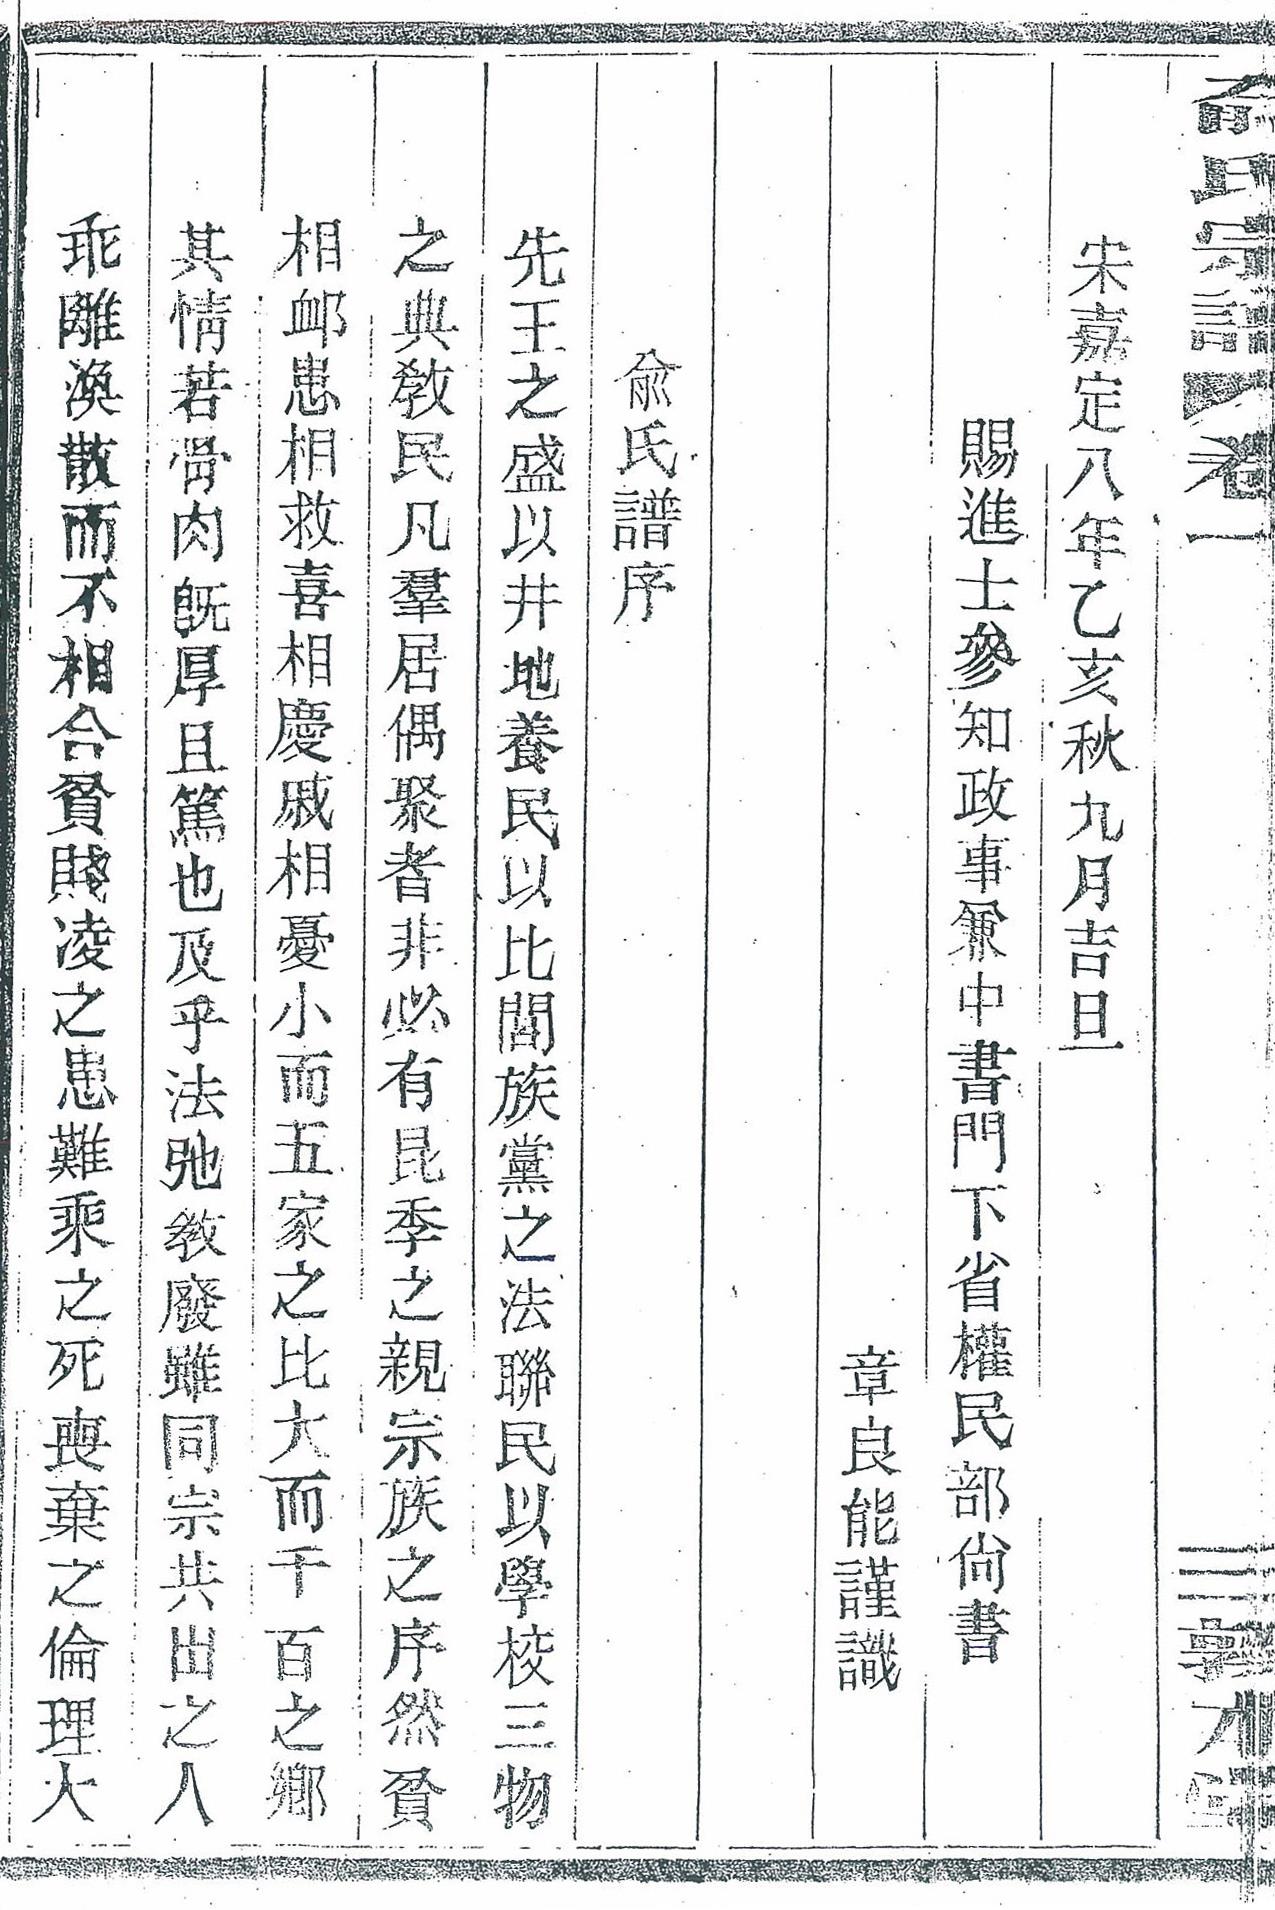 俞氏宗譜 卷一
宋嘉定八年乙亥秋九月吉旦
賜進士參知政事兼中書門下省權民部尙書
章良能謹識
俞氏譜序
先王之盛以井地養民以比閭族黨之法聯民以學校三物
之典敎民凡羣居偶聚者非必有昆季之親宗族之序然貧
相卹患相救喜相慶戚相憂小而五家之比大而千百之鄉
其情若骨肉旣厚且篤也及乎法弛敎廢雖同宗共出之人
乖離渙散而不相合貧賤凌之患難乘之死喪棄之倫理大